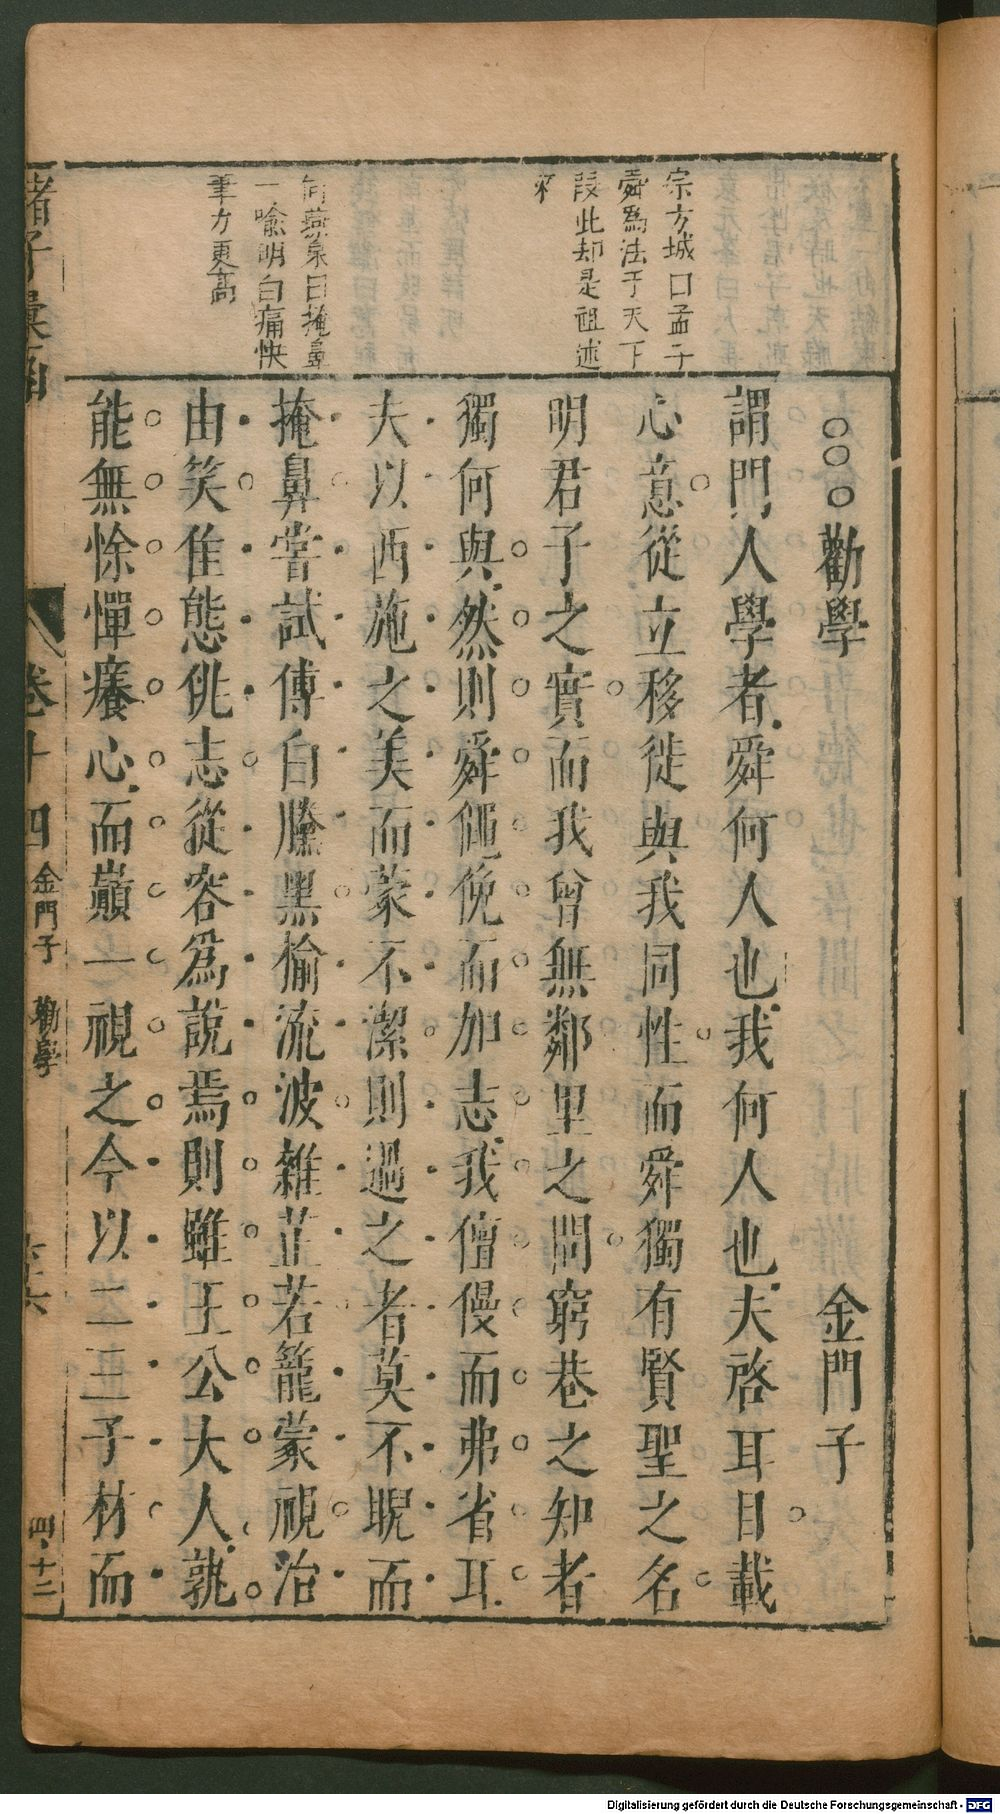 宗方城曰孟子
舜爲法于天下
段此却是祖述
來
何燕泉曰掩鼻
一喻明白痛快
筆力更高
○○○勸學 金門子
謂門人學者舜何人也我何人也夫啓耳目載
心意從立移徙與我同性而舜獨有賢聖之名
明君子之實而我曾無鄰里之問窮巷之知者
獨何與然則舜僶俛而加志我儃僈而弗省耳
夫以西施之美而蒙不潔則過之者莫不睨而
掩鼻嘗試傅白黱黑榆流波雜芷若籠蒙視治
由笑隹態佻志從容爲說焉則雖王公大人孰
能無悇憚癢心而巔一視之今以二三子材而
諸子彙函
卷十四 金門子 勸學
四十二
Digitalisierung gefördert durch die Deutsche Forschungsgemeinschaft - DFG